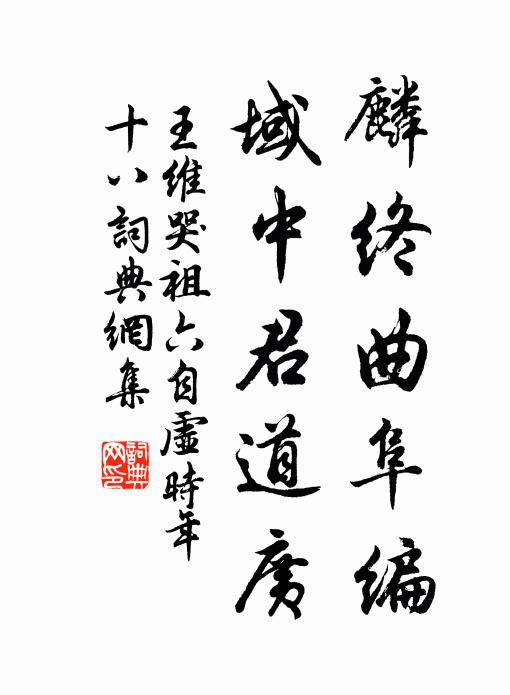 麟终曲阜编
域中君道廣
王維哭祖六自虛時年
十八詞典網集
詞典
网印